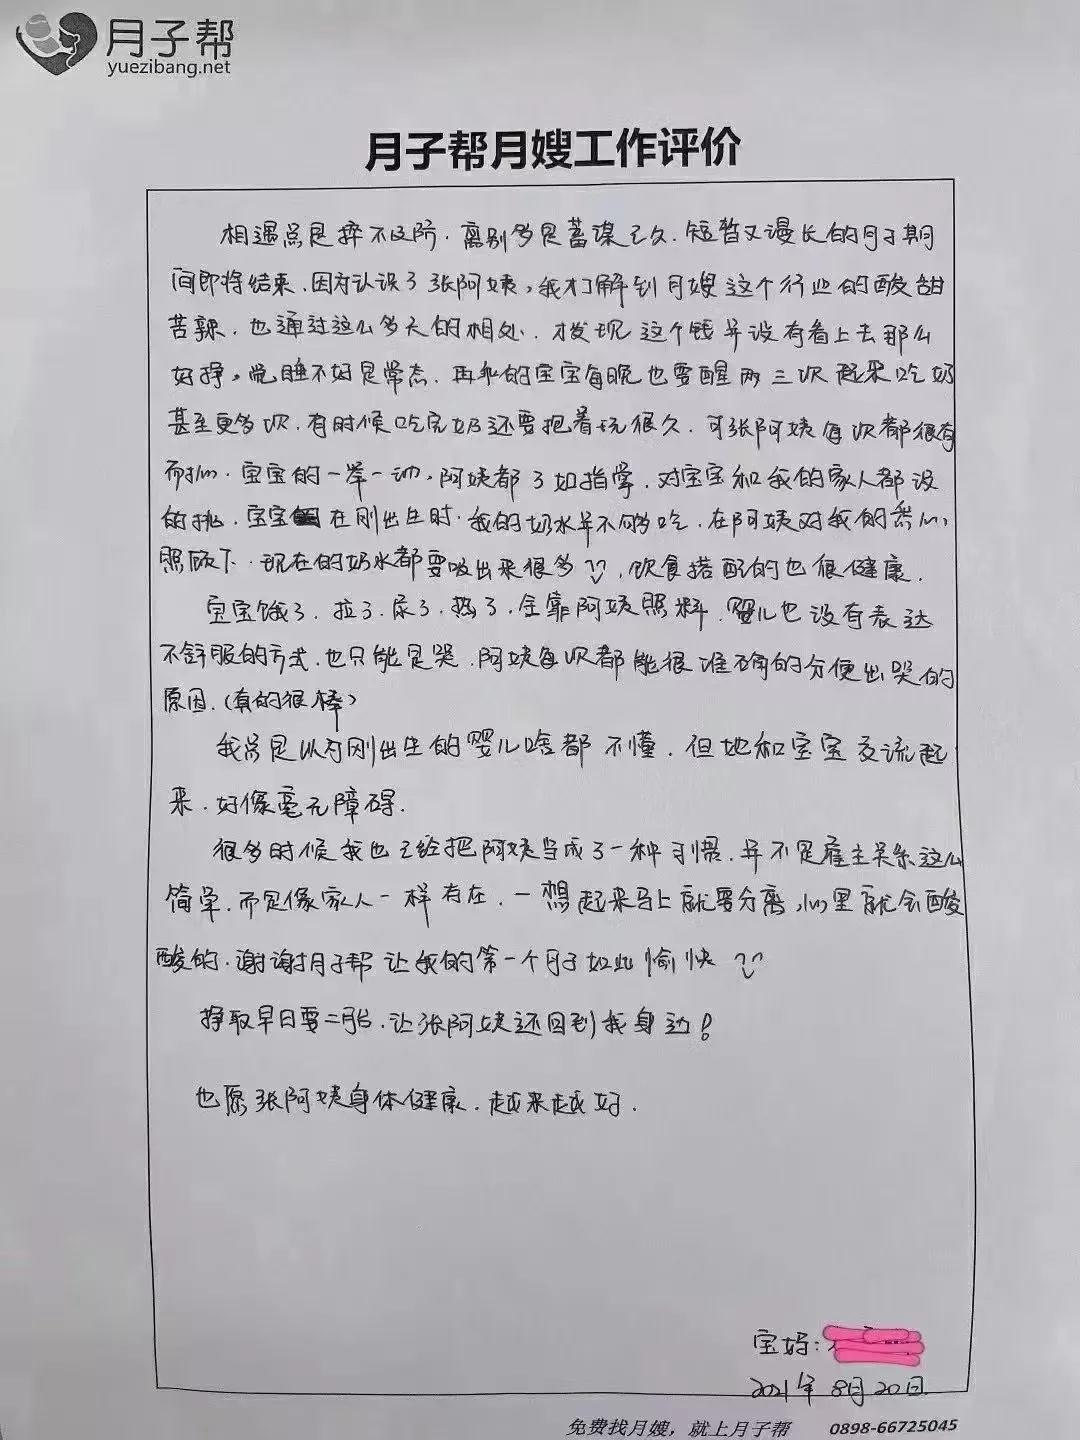 月子帮
yuezibang.net
月子帮月嫂工作评价
相遇总是猝不及防.离别多是蓄谋已久.短暂又漫长的月子期
间即将结束.因为认识了张阿姨,我才了解到月嫂这个行业的酸甜
苦辣.也通过这么多天的相处.才发现这个钱并没有看上去那么
好挣。觉睡不好是常态.再乖的宝宝每晚也要醒两三次起来吃奶
甚至更多次.有时候吃完奶还要抱着玩很久.可张阿姨每次都很有
耐心.宝宝的一举一动,阿姨都了如指掌.对宝宝和我的家人都没
的挑.宝宝在刚出生时.我的奶水并不够吃.在阿姨对我的悉心
照顾下.现在的奶水都要吸出来很多.饮食搭配的也很健康.
宝宝饿了.拉了.尿了.热了.全靠阿姨照料.婴儿也没有表达
不舒服的方式.也只能是哭.阿姨每次都能很准确的分便出哭的
原因.(真的很棒)
我总是以为刚出生的婴儿啥都不懂.但她和宝宝交流起
来.好像毫无障碍.
很多时候我也已经把阿姨当成了一种习惯.并不是雇主关系这么
简单.而是像家人一样存在.一想起来马上就要分离,心里就会酸
酸的.谢谢月子帮让我的第一个月子如此愉快
挣取早日要二胎.让张阿姨还回到我身边!
也愿张阿姨身体健康.越来越好.
宝妈:
2021年8月20日
免费找月嫂，就上月子帮 0898-66725045